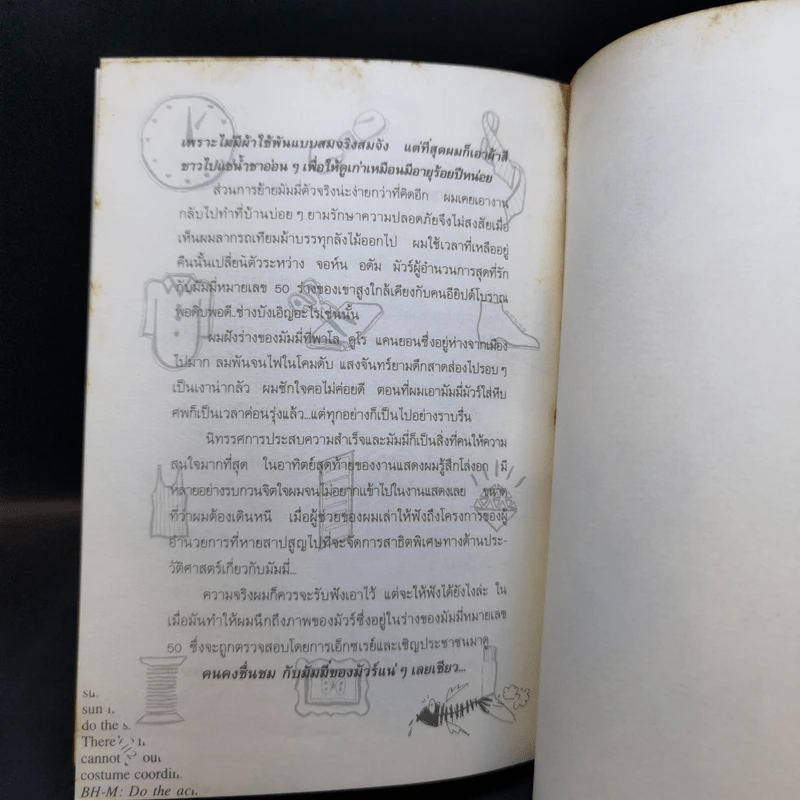 เพราะไม่มีผ้าใช้พันแบบสมจริงสมจัง แต่ที่สุดผมก็เอาผ้าสี
ขาวไปแช่น้ำชาอ่อน ๆ เพื่อให้ดูเก่าเหมือนมีอายุร้อยปีหน่อย
ส่วนการย้ายมัมมี่ตัวจริงน่ะง่ายกว่าที่คิดอีก ผมเคยเอางาน
กลับไปทำที่บ้านบ่อย ๆ ยามรักษาความปลอดภัยจึงไม่สงสัยเมื่อ
เห็นผมลากรถเทียมม้าบรรทุกลังไม้ออกไป ผมใช้เวลาที่เหลืออยู่
คืนนั้นเปลี่ยนตัวระหว่าง จอห์น อดัม มัวร์ผู้อำนวยการสุดที่รัก
กับมัมมี่หมายเลข 50 ร่างของเขาสูงใกล้เคียงกับคนอียิปต์โบราณ
พอดิบพอดี..ช่างบังเอิญอะไรเช่นนั้น
ผมฝังร่างของมัมมี่ที่พาโล ดูโร แคนยอนซึ่งอยู่ห่างจากเมือง
ไปมาก ลมพัดจนไฟในโคมดับ แสงจันทร์ยามดึกสาดส่องไปรอบ ๆ
เป็นเงาน่ากลัว ผมชักใจคอไม่ค่อยดี ตอนที่ผมเอามัมมี่มัวร์ใส่หีบ
ศพก็เป็นเวลาค่อนรุ่งแล้ว...แต่ทุกอย่างก็เป็นไปอย่างราบรื่น
นิทรรศการประสบความสำเร็จและมัมมี่ก็เป็นสิ่งที่คนให้ความ
สนใจมากที่สุด ในอาทิตย์สุดท้ายของงานแสดงผมรู้สึกโล่งอก มี
หลายอย่างรบกวนจิตใจผมจนไม่อยากเข้าไปในงานแสดงเลย ขนาด
ที่ว่าผมต้องเดินหนี เมื่อผู้ช่วยของผมเล่าให้ฟังถึงโครงการของผู้
อำนวยการที่หายสาปสูญไปที่จะจัดการสาธิตพิเศษทางด้านประ-
วัติศาสตร์เกี่ยวกับมัมมี่...
ความจริงผมก็ควรจะรับฟังเอาไว้ แต่จะให้ฟังได้ยังไงล่ะ ใน
เมื่อมันทำให้ผมนึกถึงภาพของมัวร์ซึ่งอยู่ในร่างของมัมมี่หมายเลข
50 ซึ่งจะถูกตรวจสอบโดยการเอ็กซเรย์และเชิญประชาชนมาดู
คนคงชื่นชม กับมัมมี่ของมัวร์แน่ ๆ เลยเชียว...
sun
do the
There
cannot
costume coordin
BH-M: Do the
112